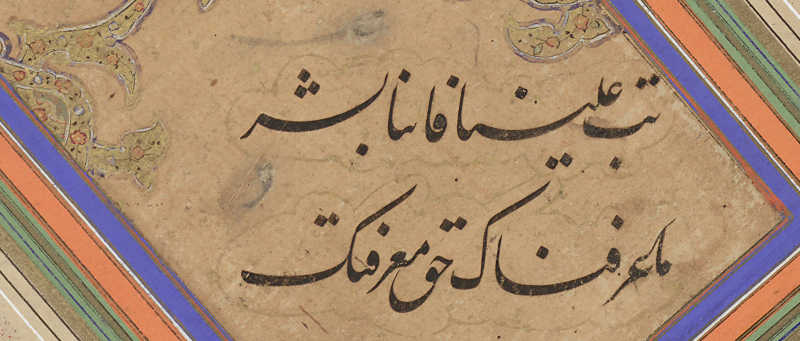 تب علینا فاننا بشر
ما عرفناک حق معرفتک